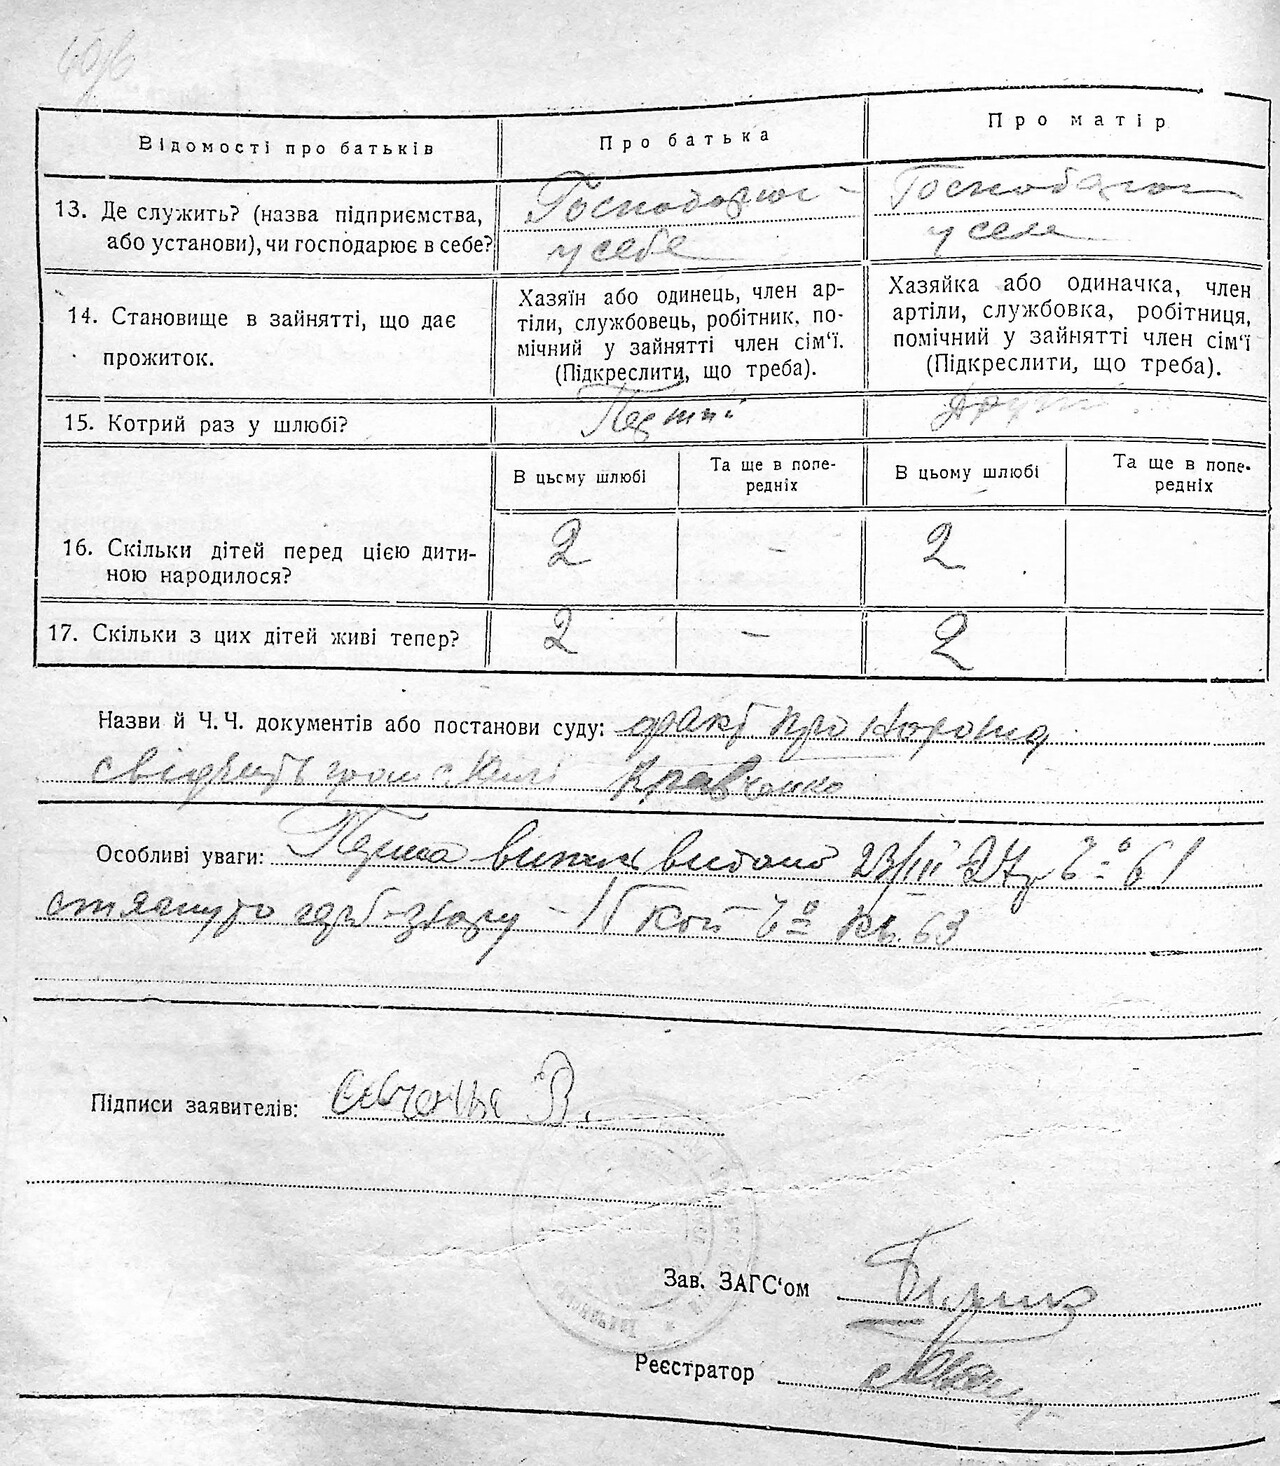 Відомості про батьків
Про батька
Про матір
13. Де служить? (назва підприємства, або установи), чи господарює в себе?
Господарює
у себе
Господарює
у себе
14. Становище в зайнятті, що дає
прожиток.
Хазяїн або одинець, член ар-
тіли, службовець, робітник, по-
мічний у зайнятті член сім'ї.
(Підкреслити, що треба).
Хазяйка або одиначка, член
артіли, службовка, робітниця,
помічний у зайнятті член сім'ї
(Підкреслити, що треба).
15. Котрий раз у шлюбі?
Перший
В цьсму шлюбі
Та ще в попе-
редніх
В цьому шлюбі
Та ще в попе-
редніх
16. Скільки дітей перед цією дити-
ною народилося?
2
-
2
17. Скільки з цих дітей живі тепер?
2
-
2
Назви й Ч. Ч. документів або постанови суду: факт про
Кравченко
Особливі уваги: Перша видано 23/III 27р 61
стягнуто герб-збору - 1Г коп кв. 63
Підписи заявителів:
Зав. ЗАГС'ом
Реєстратор